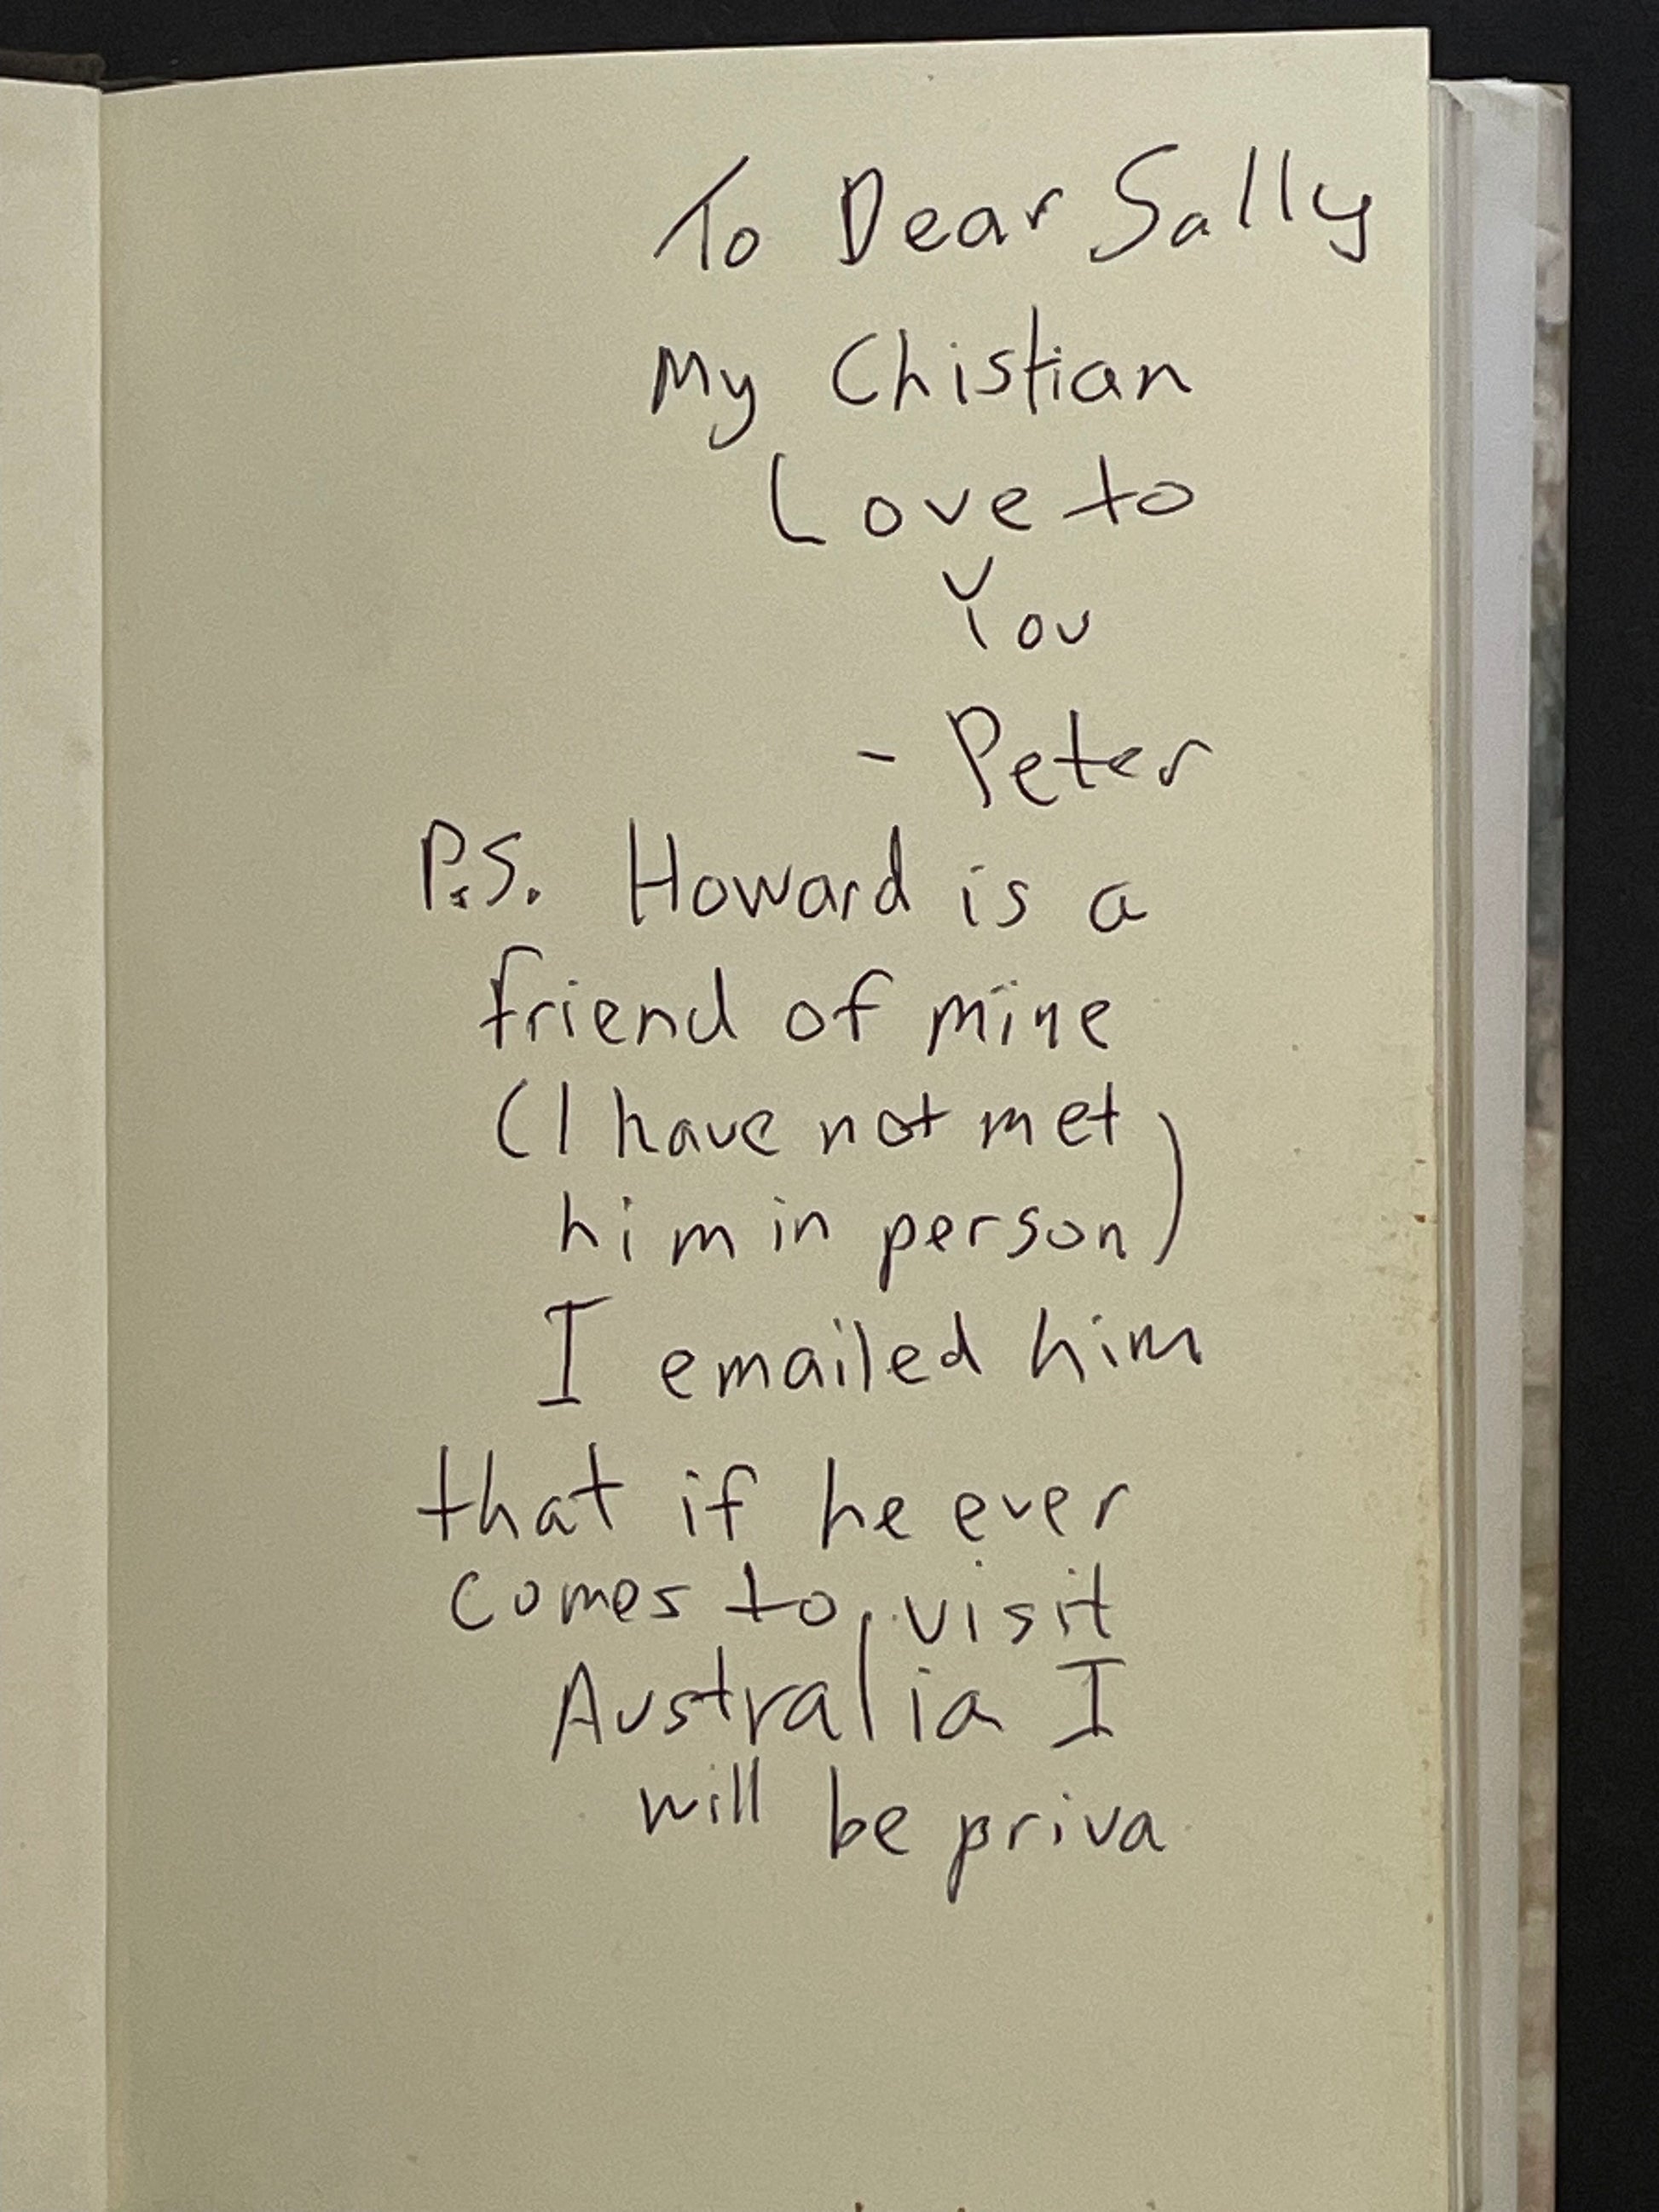 To Dear Sally
My Chistian
Love to
You
- Peter
P.S. Howard is a
friend of mine
(I have not met
him in person)
I emailed him
that if he ever
comes to visit
Australia I
will be priva